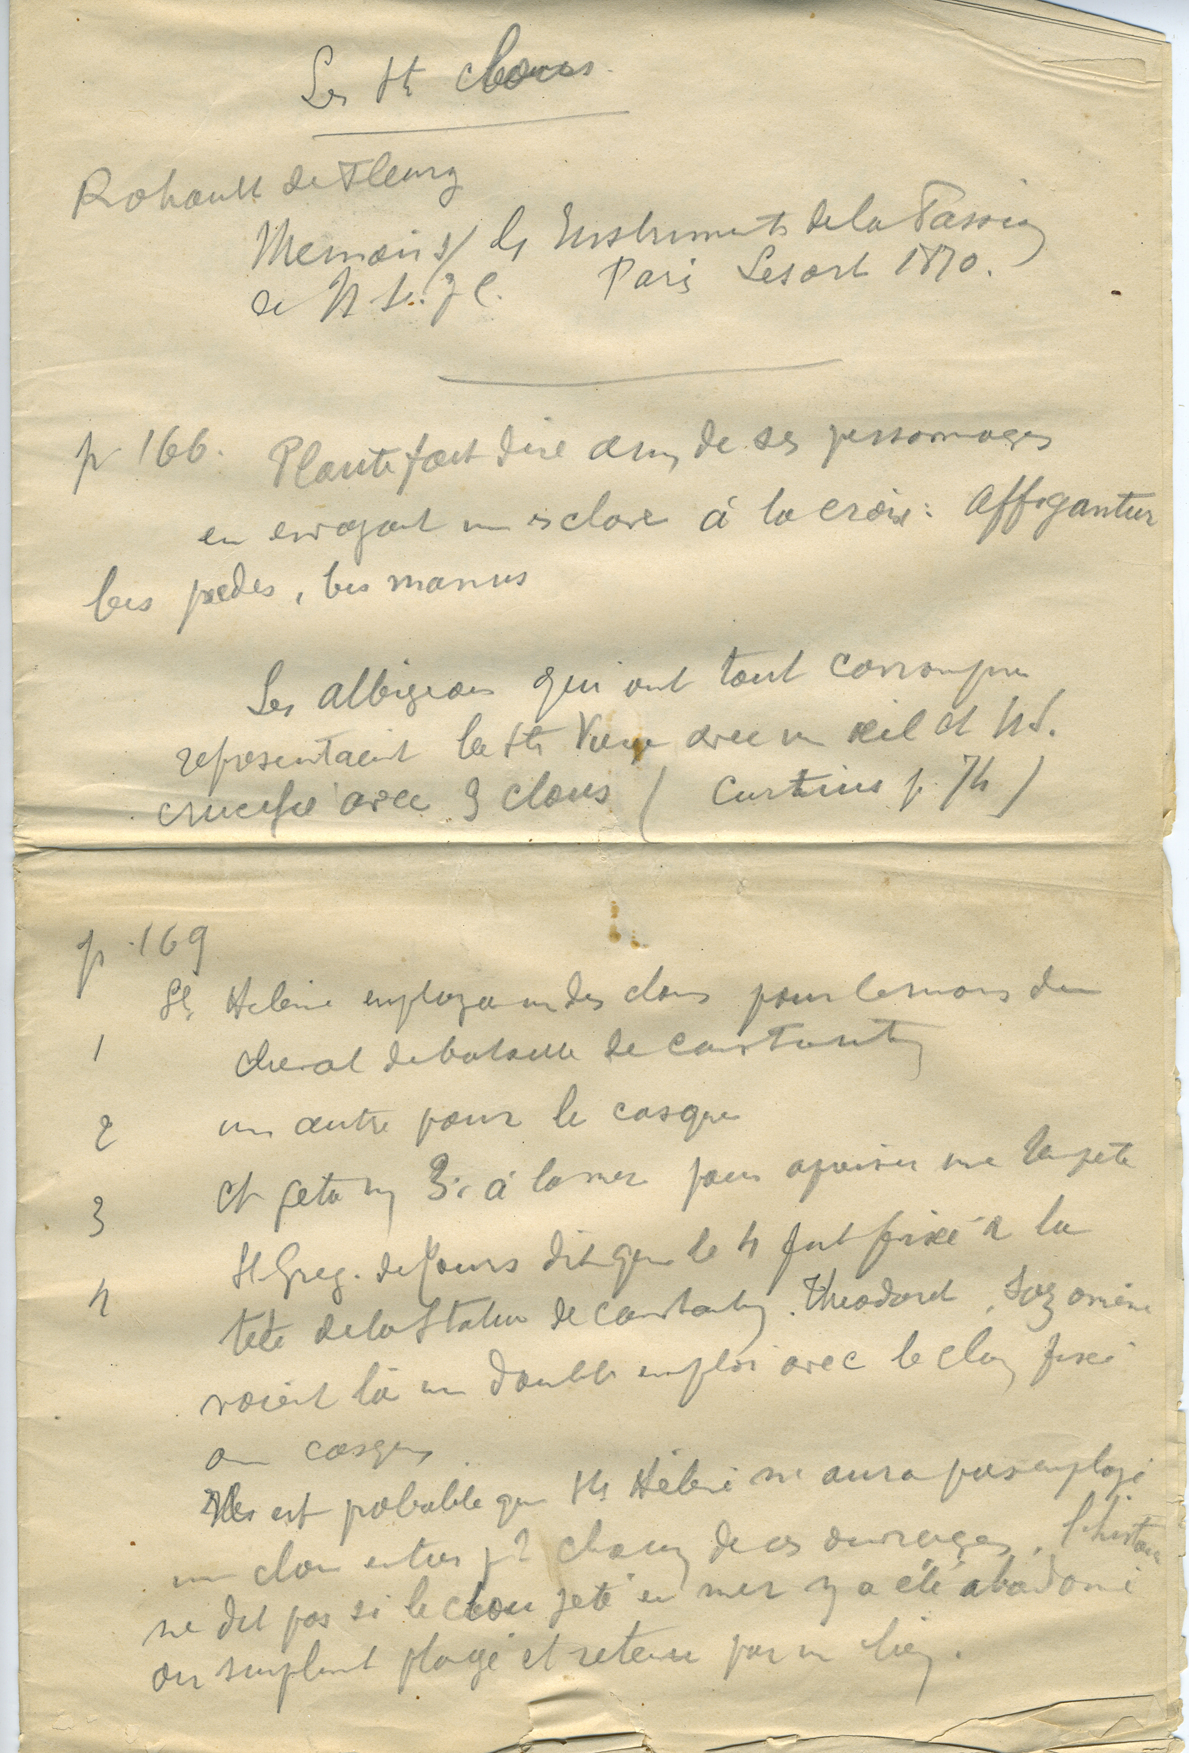 Les Sts Clous
Rohault de Fleury
Memoire s/ les Instruments de la Passion
de N. S. J C. Paris Lesort 1870.
p 166. Plaute fait dire a un de ses personnages
en envoyant un esclave à la croix : Affigantur
bis pedes, bis manus
Les albigeois qui ont tout corrompu
representaient la Ste Vierge avec un œil et N S.
crucifié avec 3 clous ( Curtius p. 74 )
p. 169
Ste Helene employa un des clous pour le mors du
1 cheval de bataille de Constantin
2 un autre pour le casque
3 et jeta un 3e à la mer pour apaiser une tempete
St Greg. de Tours dit que le 4 fut fixé à la
4 tete de la Statue de Constantin. Theodoret, Sozomène
voient là un double emploi avec le clou fixé
au casque
Il est probable que Ste Hélène n'aura pas employé
un clou entier pr chacun de ces ouvrages. l'histoire
ne dit pas si le clou jeté en mer y a été abadonné
ou simplement plongé et retenu par un lien.